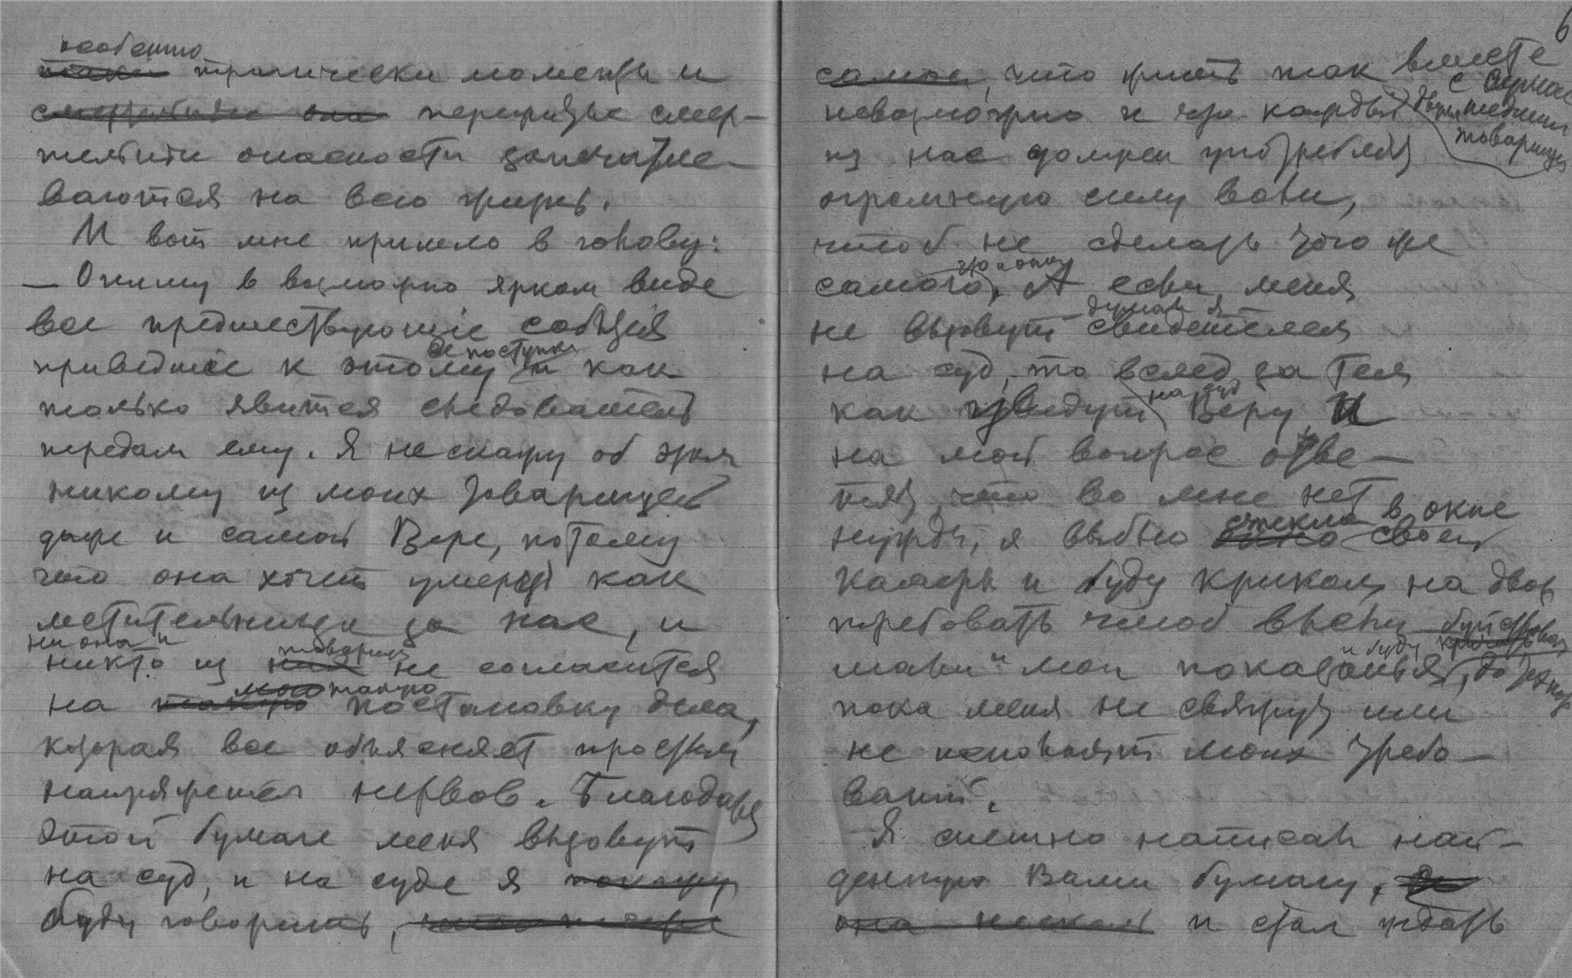 особенно
трагически моменты и
перед лицом смер-
тельной опасности запечатле-
ваются на всю жизнь.
И вот мне пришло в голову:
— Опишу в возможно ярком виде
все предшествующие события
приведшие к этому ее поступку и как
только явится следователь
передам ему. Я не скажу об этом
никому из моих товарищей
даже и самой Вере, потому
что она хочет умереть как
мстительница за нас, и
ни она и
никто из товарищей не согласится
на такую постановку дела,
которая все объясняет простым
напряжением нервов. Благодаря
этой бумаге меня вызовут
на суд, и на суде я покажу
буду говорить,
6
самое, что жить так вместе
с
невозможно и что каждый
товарищ
из нас должен употреблять
огромную силу воли,
чтоб не сделать того же
самого. А если меня
не вызовут думал я свидетелем
на суд, то вслед за тем
как уведут на суд Веру, и
на мой вопрос отве-
тят, что во мне нет
нужды, я выбью окно стекло в окне своей
камеры и буду криком на двор
требовать чтоб
мои показанья, и буду до тех пор
пока меня не свяжут или
не исполнят моих требо-
ваний.
Я спешно написал най-
денную Вами бумагу,
она и стал ждать